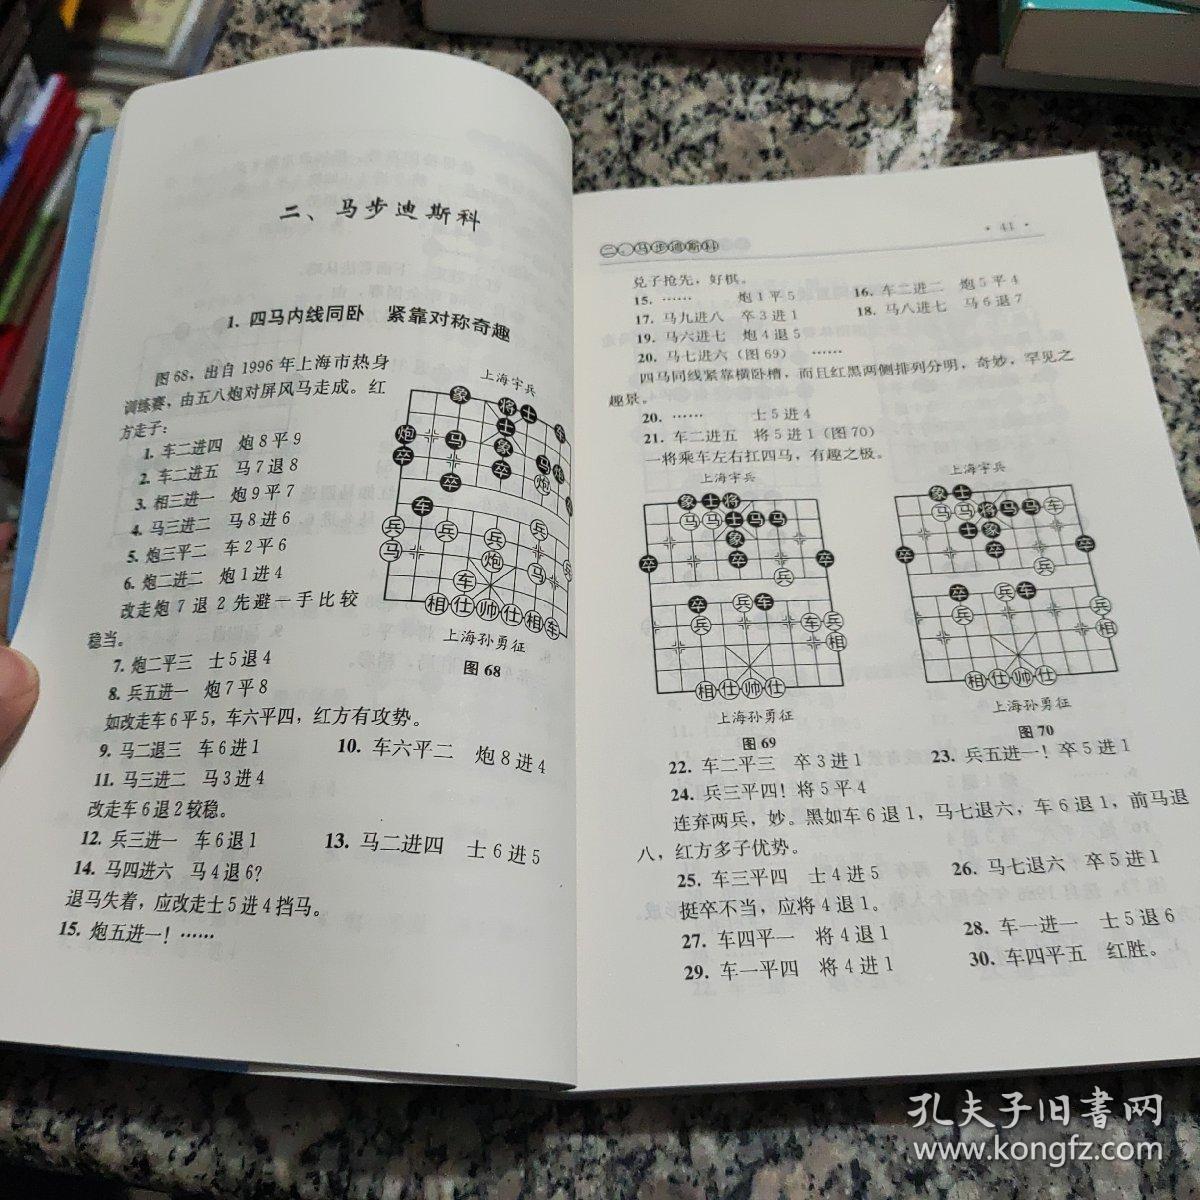 二、马步迪斯科
1. 四马内线同卧　紧靠对称奇趣
图68，出自1996年上海市热身
训练赛，由五八炮对屏风马走成。红
方走子：
1. 车二进四　炮8平9
2. 车二进五　马7退8
3. 相三进一　炮9平7
4. 马三进二　马8进6
5. 炮三平二　车2平6
6. 炮二进二　炮1进4
改走炮7退2先避一手比较
稳当。
7. 炮二平三　士5退4
8. 兵五进一　炮7平8
如改走车6平5，车六平四，红方有攻势。
9. 马二退三　车6进1　10. 车六平二　炮8进4
11. 马三进二　马3进4
改走车6退2较稳。
12. 兵三进一　车6退1　13. 马二进四　士6进5
14. 马四进六　马4退6？
退马失着，应改走士5进4挡马。
15. 炮五进一！……
上海宇兵
象 将 士 车
士
炮 马 象 马 炮
卒 卒 炮
卒
车
兵 兵 兵 兵
马 炮 马
车
相 仕 帅 仕 相 车
上海孙勇征
图68
二、马步迪斯科　· 41 ·
兑子抢先，好棋。
15. ……　炮1平5　16. 车二进二　炮5平4
17. 马九进八　卒3进1　18. 马八进七　马6退7
19. 马六进七　炮4退5
20. 马七进六（图69）　……
四马同线紧靠横卧槽，而且红黑两侧排列分明，奇妙，罕见之
趣景。
20. ……　士5进4
21. 车二进五　将5进1（图70）
一将乘车左右扛四马，有趣之极。
上海宇兵
象 士 将
马 马 士 马 马
象
卒 卒 卒
兵
卒 兵 车
兵 车 兵
相
相 仕 帅 仕
上海孙勇征
图69
上海宇兵
象 士
马 马 将 马 马 车
士 象
卒 卒 卒
兵
卒 兵 车
兵 兵
相
相 仕 帅 仕
上海孙勇征
图70
22. 车二平三　卒3进1　23. 兵五进一！卒5进1
24. 兵三平四！将5平4
连弃两兵，妙。黑如车6退1，马七退六，车6退1，前马退
八，红方多子优势。
25. 车三平四　士4进5　26. 马七退六　卒5进1
挺卒不当，应将4退1。
27. 车四平一　将4退1　28. 车一进一　士5退6
29. 车一平四　将4进1　30. 车四平五　红胜。
孔夫子旧书网
www.kongfz.com